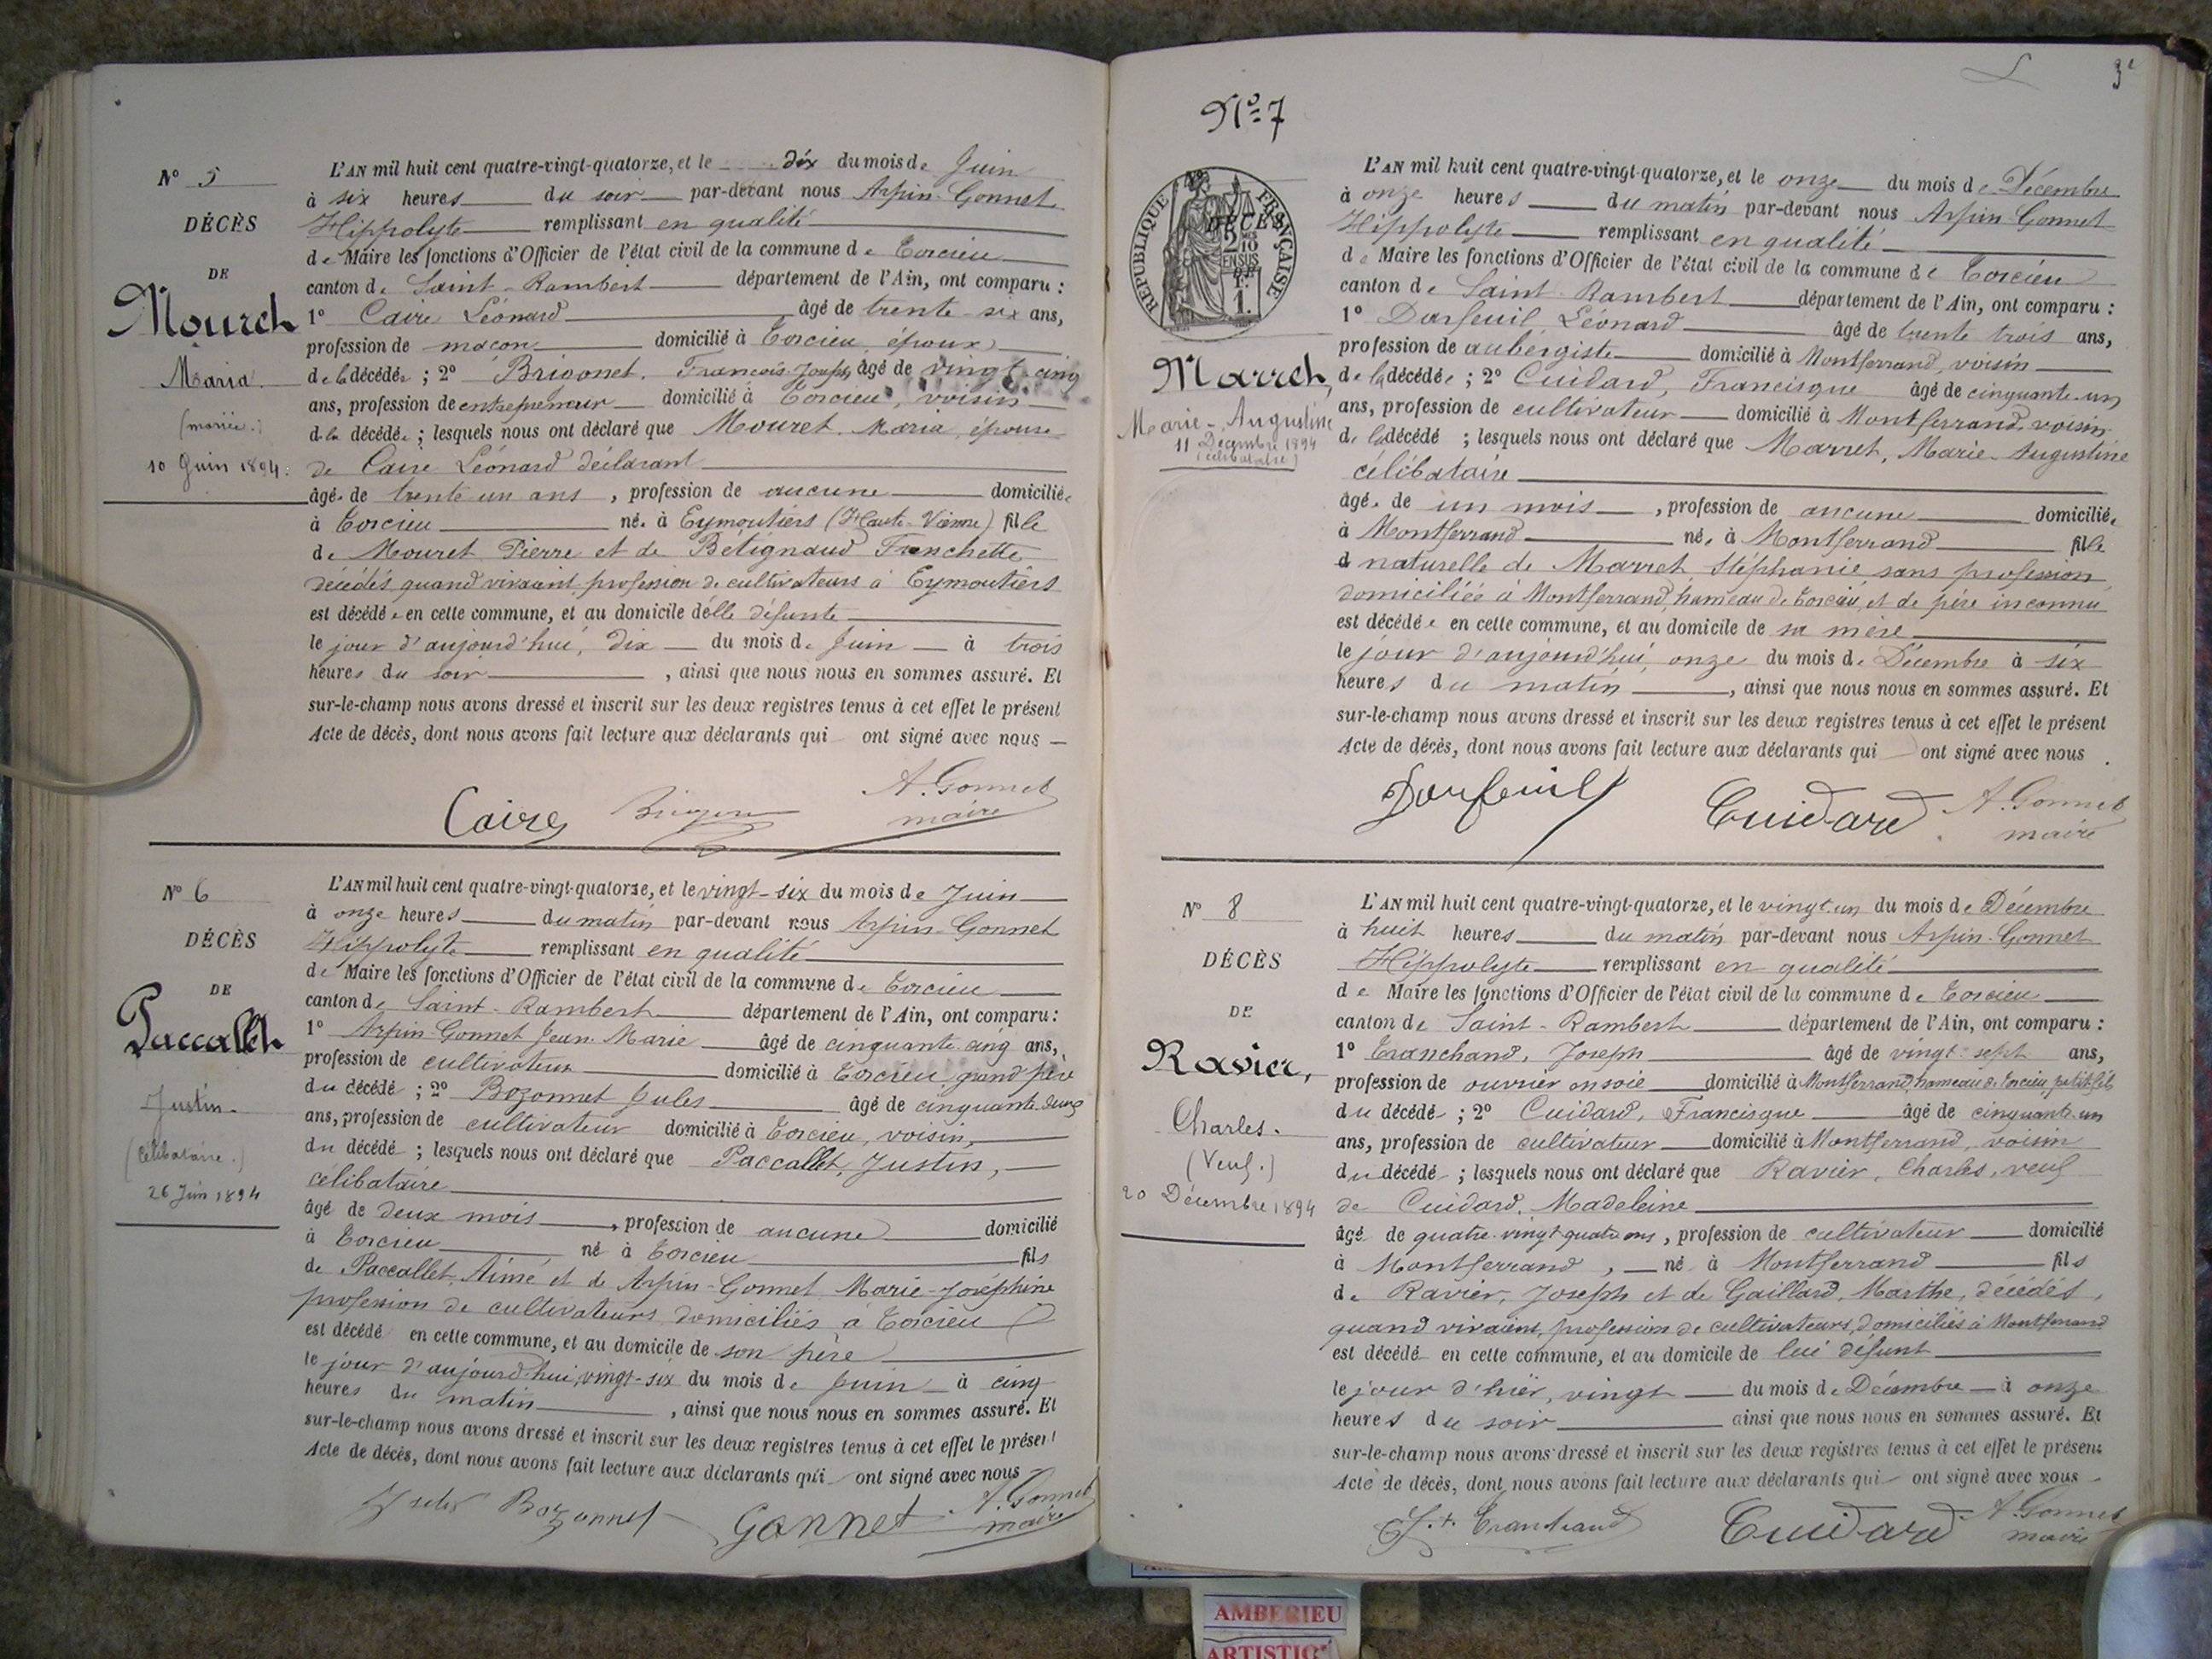 N° 5
DÉCÈS
DE
Mouret
Maria
(mariée.)
10 Juin 1894.
L'AN mil huit cent quatre-vingt-quatorze, et le dix du mois de Juin
à six heures du soir par-devant nous Arpin-Gonnet
Hippolyte remplissant en qualité
de Maire les fonctions d'Officier de l'état civil de la commune de Torcieu
canton de Saint-Rambert département de l'Ain, ont comparu :
1° Caire Léonard âgé de trente six ans,
profession de maçon domicilié à Torcieu, époux
de la décédée ; 2° Brigonet, François Joseph, âgé de vingt-cinq
ans, profession de entrepreneur domicilié à Torcieu, voisin
de la décédée ; lesquels nous ont déclaré que Mouret Maria, épouse
de Caire Léonard déclarant
âgée de trente un ans, profession de aucune domiciliée
à Torcieu née à Eymoutiers (Haute-Vienne) fille
de Mouret Pierre et de Bétignaud Franchette
décédés quand vivaient profession de cultivateurs à Eymoutiers
est décédée en cette commune, et au domicile d'elle défunte
le jour d'aujourd'hui, dix du mois de Juin à trois
heures du soir, ainsi que nous nous en sommes assuré. Et
sur-le-champ nous avons dressé et inscrit sur les deux registres tenus à cet effet le présent
Acte de décès, dont nous avons fait lecture aux déclarants qui ont signé avec nous
Caire A. Gonnet
maire
N° 6
DÉCÈS
DE
Paccallet
Justin.
(célibataire.)
26 Juin 1894
L'AN mil huit cent quatre-vingt-quatorze, et le vingt-six du mois de Juin
à onze heures du matin par-devant nous Arpin-Gonnet
Hippolyte remplissant en qualité
de Maire les fonctions d'Officier de l'état civil de la commune de Torcieu
canton de Saint-Rambert département de l'Ain, ont comparu :
1° Arpin-Gonnet Jean-Marie âgé de cinquante cinq ans,
profession de cultivateur domicilié à Torcieu, grand père
du décédé ; 2° Bozonnet Jules âgé de cinquante deux
ans, profession de cultivateur domicilié à Torcieu, voisin,
du décédé ; lesquels nous ont déclaré que Paccallet, Justin,
célibataire
âgé de deux mois, profession de aucune domicilié
à Torcieu né à Torcieu fils
de Paccallet, Aimé et de Arpin-Gonnet Marie-Joséphine
profession de cultivateurs domiciliés à Torcieu
est décédé en cette commune, et au domicile de son père
le jour d'aujourd'hui, vingt-six du mois de Juin à cinq
heures du matin, ainsi que nous nous en sommes assuré. Et
sur-le-champ nous avons dressé et inscrit sur les deux registres tenus à cet effet le présent
Acte de décès, dont nous avons fait lecture aux déclarants qui ont signé avec nous
Bozonnet Gonnet A. Gonnet
maire
3e
N° 7
RÉPUBLIQUE FRANÇAISE
DÉCÈS
2 MES
10
EN SUS
1.
Marret,
Marie-Augustine
11 Décembre 1894
(célibataire)
L'AN mil huit cent quatre-vingt-quatorze, et le onze du mois de Décembre
à onze heures du matin par-devant nous Arpin-Gonnet
Hippolyte remplissant en qualité
de Maire les fonctions d'Officier de l'état civil de la commune de Torcieu
canton de Saint-Rambert département de l'Ain, ont comparu :
1° Darfeuil, Léonard âgé de trente trois ans,
profession de aubergiste domicilié à Montferrand, voisin
de la décédée ; 2° Cuidard, Francisque âgé de cinquante-un
ans, profession de cultivateur domicilié à Montferrand, voisin
de la décédé ; lesquels nous ont déclaré que Marret, Marie-Augustine
célibataire
âgée de un mois, profession de aucune domiciliée
à Montferrand née à Montferrand fille
d naturelle de Marret Stéphanie sans profession
domiciliée à Montferrand, hameau de Torcieu, et de père inconnu
est décédée en cette commune, et au domicile de sa mère
le jour d'aujourd'hui, onze du mois de Décembre à six
heures du matin, ainsi que nous nous en sommes assuré. Et
sur-le-champ nous avons dressé et inscrit sur les deux registres tenus à cet effet le présent
Acte de décès, dont nous avons fait lecture aux déclarants qui ont signé avec nous.
Darfeuil Cuidard A. Gonnet
maire
N° 8
DÉCÈS
DE
Ravier,
Charles.
(Veuf.)
20 Décembre 1894
L'AN mil huit cent quatre-vingt-quatorze, et le vingt-un du mois de Décembre
à huit heures du matin par-devant nous Arpin-Gonnet
Hippolyte remplissant en qualité
de Maire les fonctions d'Officier de l'état civil de la commune de Torcieu
canton de Saint-Rambert département de l'Ain, ont comparu :
1° Tranchand, Joseph âgé de vingt-sept ans,
profession de ouvrier en soie domicilié à Montferrand, hameau de Torcieu, petit-fils
du décédé ; 2° Cuidard, Francisque âgé de cinquante-un
ans, profession de cultivateur domicilié à Montferrand, voisin
du décédé ; lesquels nous ont déclaré que Ravier, Charles, veuf
de Cuidard, Madeleine
âgé de quatre-vingt-quatre ans, profession de cultivateur domicilié
à Montferrand, né à Montferrand fils
de Ravier, Joseph et de Gaillard, Marthe, décédés,
quand vivaient, profession de cultivateurs, domiciliés à Montferrand
est décédé en cette commune, et au domicile de lui défunt
le jour d'hier, vingt du mois de Décembre à onze
heures du soir ainsi que nous nous en sommes assuré. Et
sur-le-champ nous avons dressé et inscrit sur les deux registres tenus à cet effet le présent
Acte de décès, dont nous avons fait lecture aux déclarants qui ont signé avec nous
J. Tranchand Cuidard A. Gonnet
maire
AMBERIEU
ARTISTIC